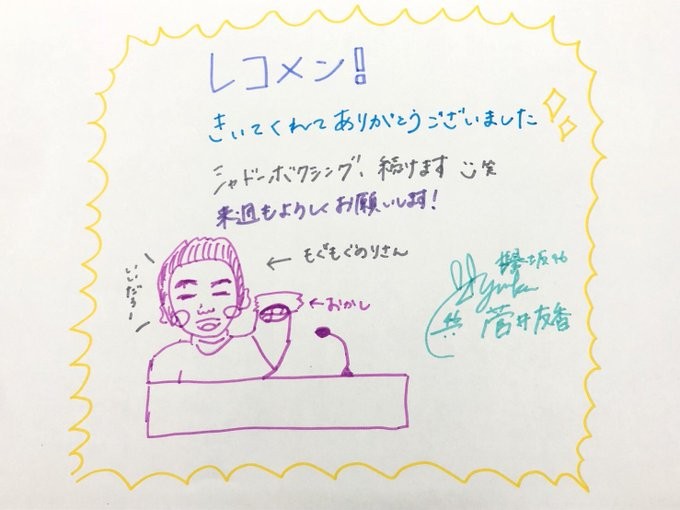 レコメン!
きいてくれてありがとうございました
シャドーボクシング、続けます 笑
来週もよろしくお願いします!
いいだろー
← もぐもぐのりさん
←おかし
欅坂46
Yuuka
菅井友香